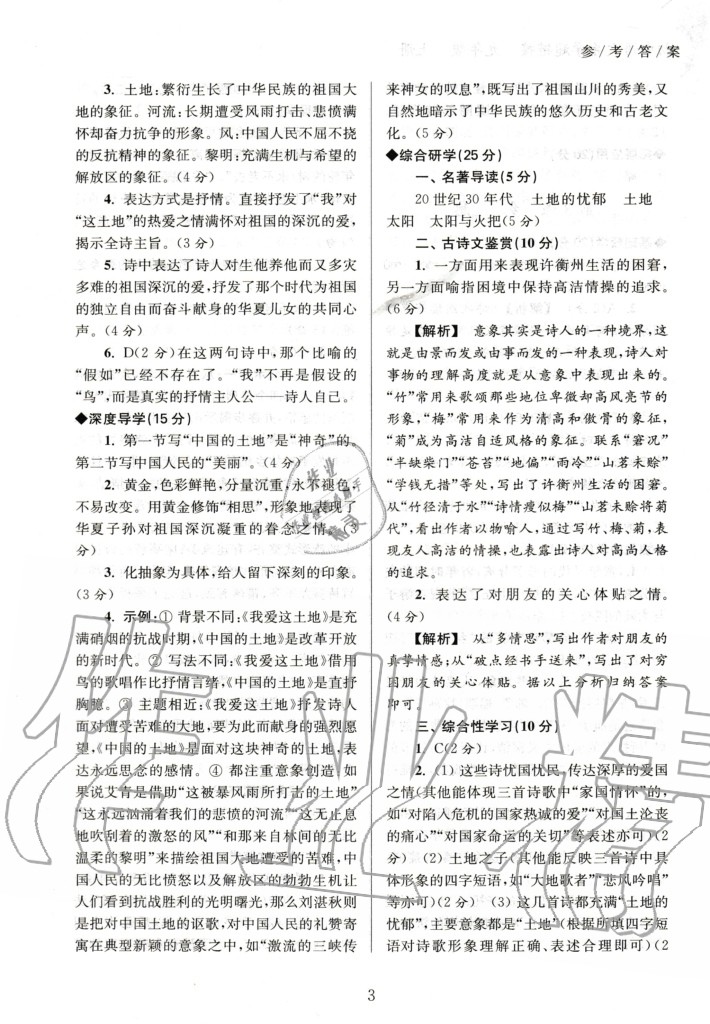 参/考/答/案
3. 土地:繁衍生长了中华民族的祖国大
地的象征。河流:长期遭受风雨打击、悲愤满
怀却奋力抗争的形象。风:中国人民不屈不挠
的反抗精神的象征。黎明:充满生机与希望的
解放区的象征。(4分)
4. 表达方式是抒情。直接抒发了“我”对
“这土地”的热爱之情满怀对祖国的深沉的爱,
揭示全诗主旨。(3分)
5. 诗中表达了诗人对生他养他而又多灾
多难的祖国深沉的爱,抒发了那个时代为祖国
的独立自由而奋斗献身的华夏儿女的共同心
声。(4分)
6. D(2分)在这两句诗中,那个比喻的
“假如”已经不存在了。“我”不再是假设的
“鸟”,而是真实的抒情主人公——诗人自己。
◆深度导学(15分)
1. 第一节写“中国的土地”是“神奇”的。
第二节写中国人民的“美丽”。(4分)
2. 黄金,色彩鲜艳,分量沉重,永不褪色,
不易改变。用黄金修饰“相思”,形象地表现了
华夏子孙对祖国深沉凝重的眷念之情。(3
分)
3. 化抽象为具体,给人留下深刻的印象。
(3分)
4. 示例:① 背景不同:《我爱这土地》是充
满硝烟的抗战时期,《中国的土地》是改革开放
的新时代。② 写法不同:《我爱这土地》借用
鸟的歌唱作比抒情言绪,《中国的土地》是直抒
胸臆。③ 主题相近:《我爱这土地》抒发诗人
面对遭受苦难的大地,要为此而献身的强烈愿
望,《中国的土地》是面对这块神奇的土地,表
达永远思念的感情。④ 都注重意象创造:如
果说艾青是借助“这被暴风雨所打击的土地”
“这永远汹涌着我们的悲愤的河流”“这无止息
地吹刮着的激怒的风”“和那来自林间的无比
温柔的黎明”来描绘祖国大地遭受的苦难,中
国人民的无比愤怒以及解放区的勃勃生机让
人们看到抗战胜利的光明曙光,那么刘湛秋则
是把对中国土地的讴歌,对中国人民的礼赞寄
寓在典型新颖的意象之中,如“激流的三峡传
来神女的叹息”,既写出了祖国山川的秀美,又
自然地暗示了中华民族的悠久历史和古老文
化。(5分)
◆综合研学(25分)
一、名著导读(5分)
20世纪30年代 土地的忧郁 土地
太阳 太阳与火把(5分)
二、古诗文鉴赏(10分)
1. 一方面用来表现许衡州生活的困窘,
另一方面喻指困境中保持高洁情操的追求。
(6分)
【解析】 意象其实是诗人的一种境界,这
就是由景而发或由事而发的一种表现,诗人对
事物的理解高度就是从意象中表现出来的。
“竹”常用来歌颂那些地位卑微却高风亮节的
形象,“梅”常用来作为清高和傲骨的象征,
“菊”成为自适风格的象征。联系“窘况”
“半缺柴门”“苍苔”“地偏”“雨冷”“山茗未赊”
“学钱无措”等,写出了诗人的生活的困窘。
从“竹径清于水”“诗情瘦似梅”“山茗未赊将菊
代”,看出作者以物喻人,通过写竹、梅、菊,表
现友人高洁的情操,也表露出诗人对高尚人格
的追求。
2. 表达了对朋友的关心体贴之情。
(4分)
【解析】 从“多情思”,写出作者对朋友的
真挚情感;从“破点经书手送来”,写出了对穷
困朋友的关心体贴。据以上分析归纳答案
即可。
三、综合性学习(10分)
1. C(2分)
2. (1) 这些诗忧国忧民,传达深厚的爱国
之情(其他能表现三首诗歌中“家国情怀”的,
如“对陷入危机的国家热诚的爱”“对国土沦丧
的痛心”“对国家命运的关切”等表述亦可)(2
分) (2) 土地之子(其他能反映三首诗中具
体形象的四字短语,如“大地歌者”“悲风吟唱”
等亦可)(2分) (3) 这几首诗都充满“土地的
忧郁”,主要意象都是“大地”(根据所填四字短
语对诗歌形象理解正确、表述合理即可)(2
3